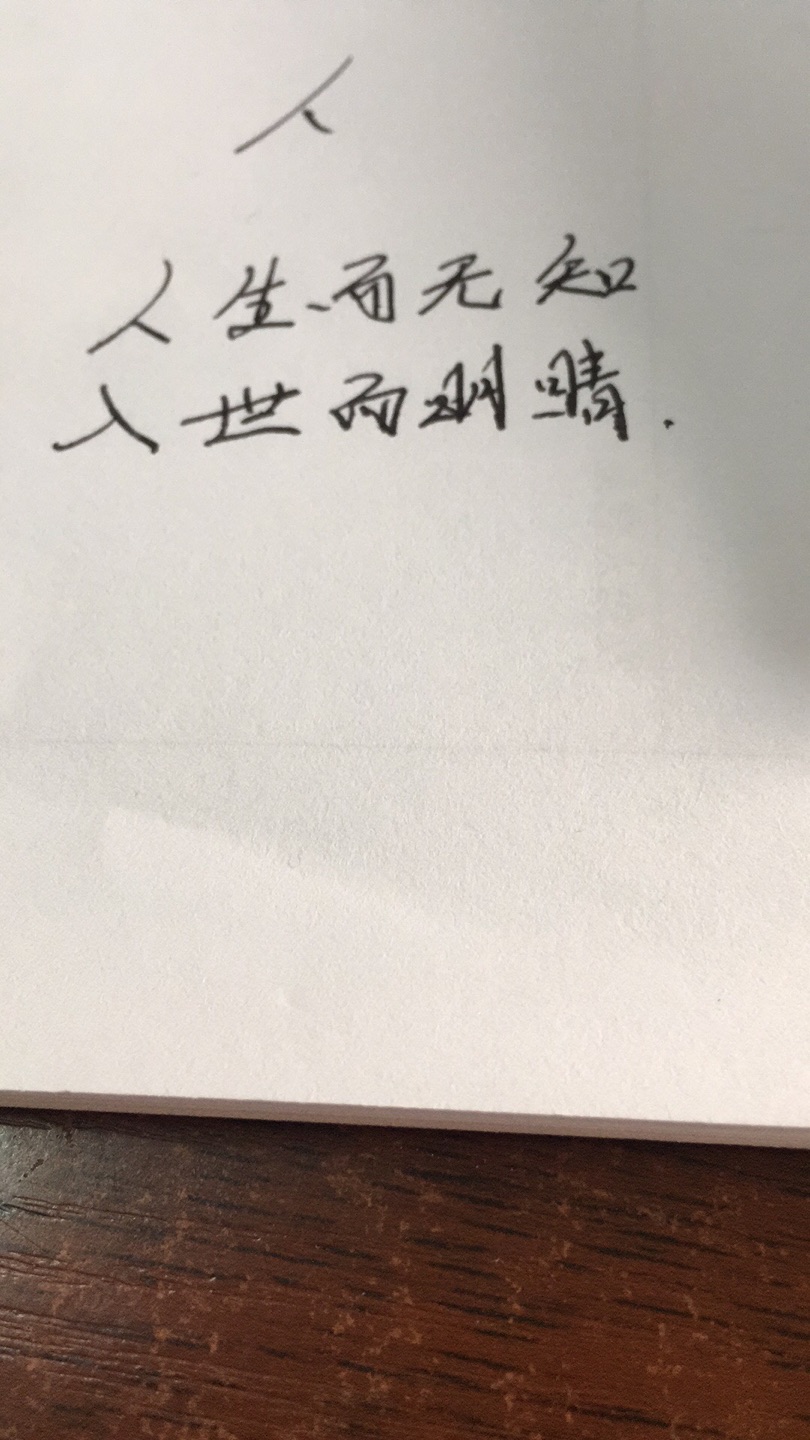 人
人生而无知
入世而明晴.